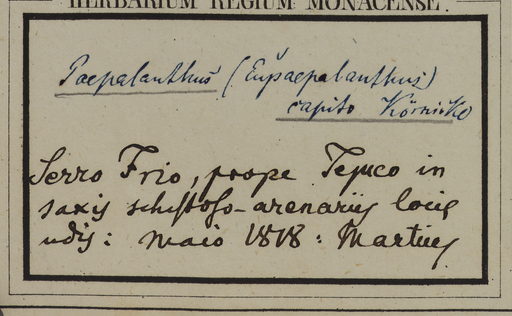 HERBARIUM REGIUM MONACENSE.
Paepalanthus (Eupaepalanthus)
capito Körnicke
Serro Frio, prope Tejuco in
saxis schistoso-arenariis locis
udis: maio 1818: Martius